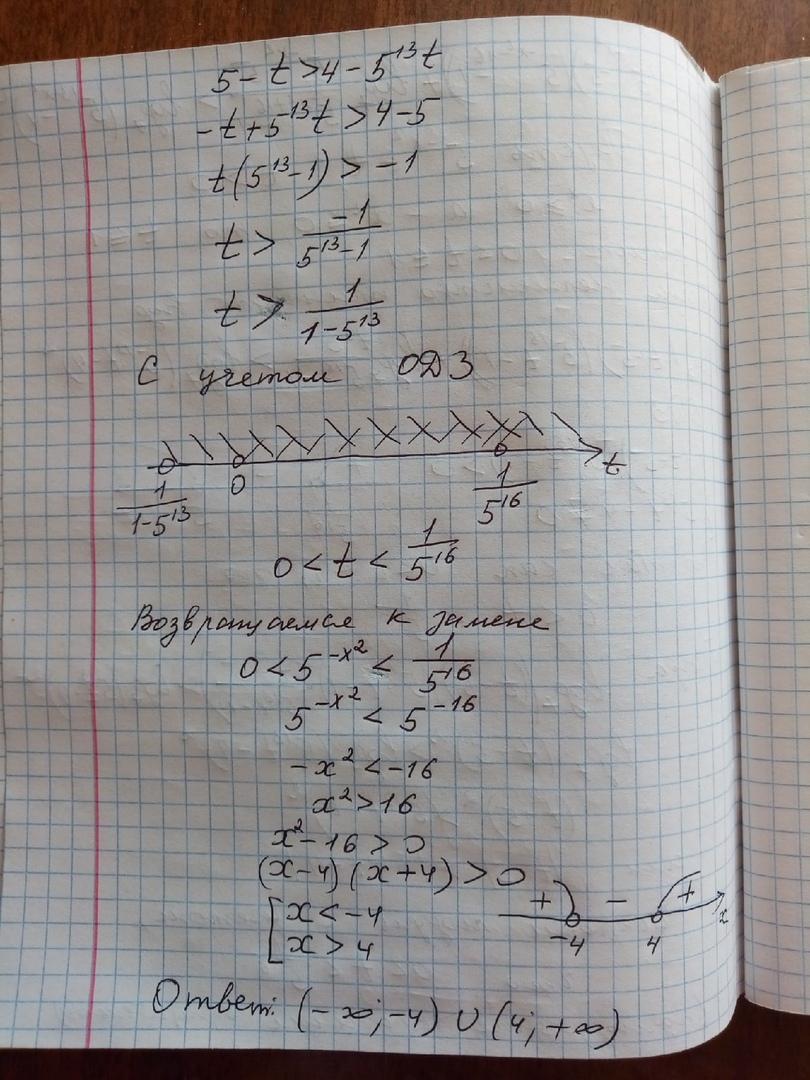 5 - t > 4 - 5^{13}t
-t + 5^{-13}t > 4 - 5
t(5^{13} - 1) > -1
t > \frac{-1}{5^{13} - 1}
t > \frac{1}{1 - 5^{13}}
С учетом ОДЗ
\frac{1}{1 - 5^{13}} 0 \frac{1}{5^{16}} t
0 < t < \frac{1}{5^{16}}
Возвращаемся к замене
0 < 5^{-x^2} < \frac{1}{5^{16}}
5^{-x^2} < 5^{-16}
-x^2 < -16
x^2 > 16
x^2 - 16 > 0
(x - 4)(x + 4) > 0
[ x < -4
x > 4
+ - +
-4 4 x
Ответ: (-∞; -4) ∪ (4; +∞)